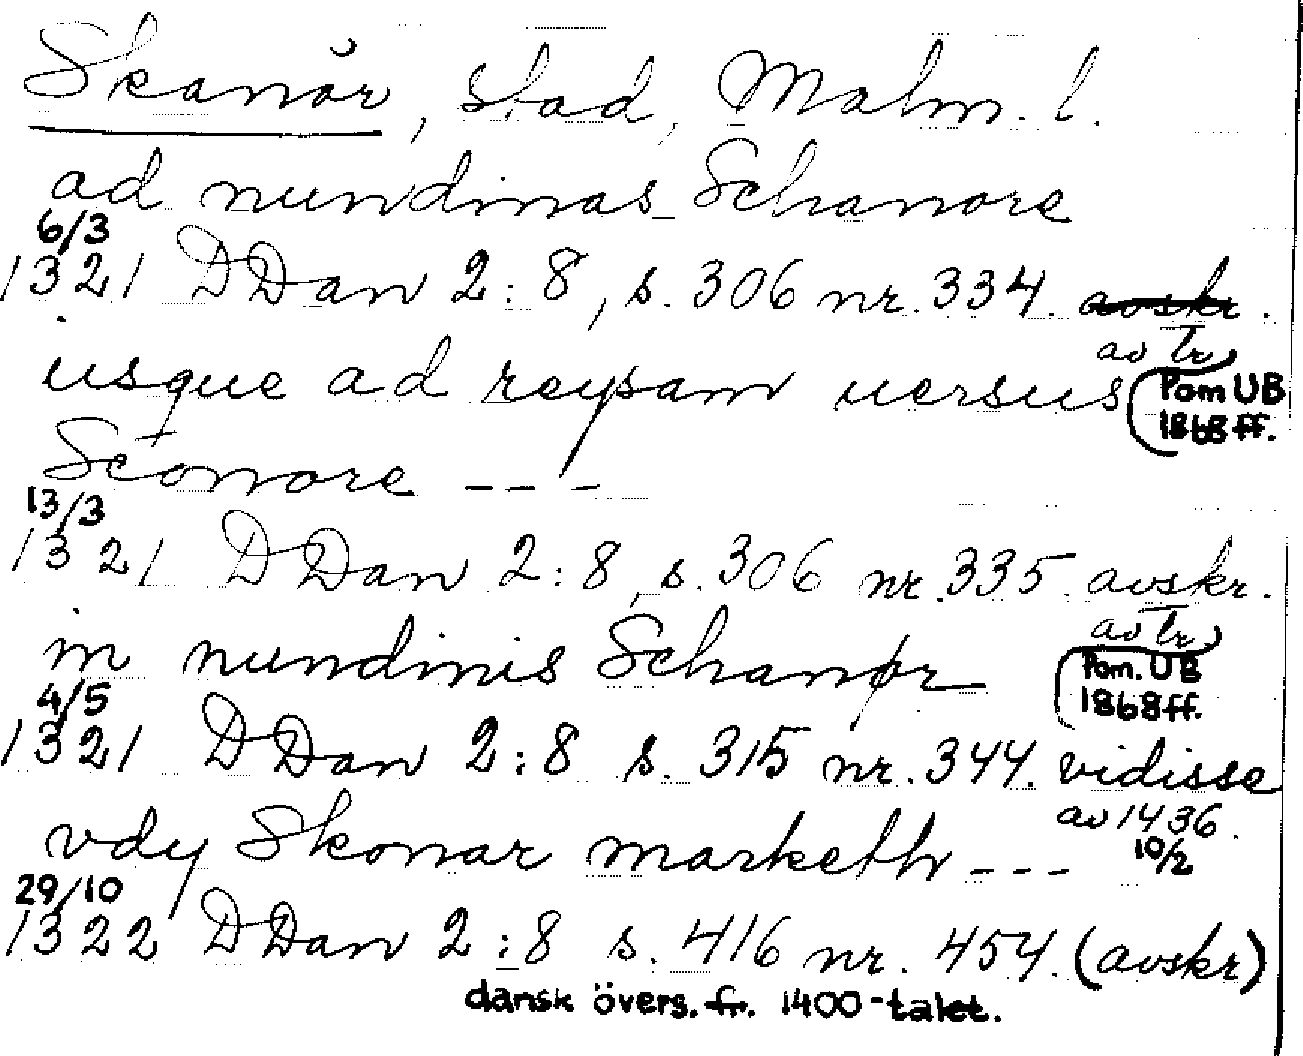 Skanör, stad, Malm. l.
ad nundinas Schanore
6/3
1321 DDan 2:8, s. 306 nr. 334. avskr.
av tr
usque ad reysam uersus (Pom UB
1868 ff.
Sconore ---
13/3
1321 DDan 2:8, s. 306 nr. 335 avskr.
av tr
in nundinis Schanør (Pom. UB
1868 ff.
4/5
1321 DDan 2:8 s. 315 nr. 344. vidisse
av 1436.
10/2
vdy Skonar marketh ---
29/10
1322 DDan 2:8 s. 416 nr. 454. (avskr)
dansk övers. fr. 1400-talet.